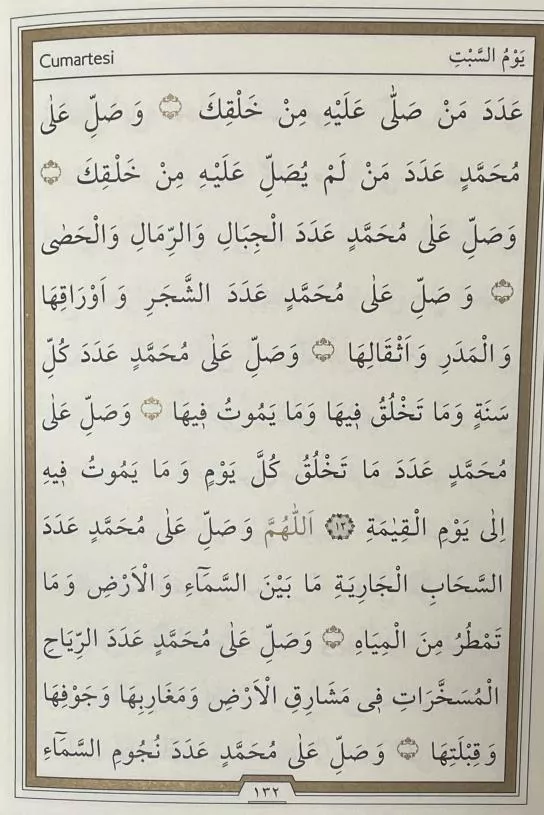 Cumartesi يَوْمُ السَّبْتِ
عَدَدَ مَنْ صَلّٰى عَلَيْهِ مِنْ خَلْقِكَ ۝ وَ صَلِّ عَلٰى
مُحَمَّدٍ عَدَدَ مَنْ لَمْ يُصَلِّ عَلَيْهِ مِنْ خَلْقِكَ ۝
وَصَلِّ عَلٰى مُحَمَّدٍ عَدَدَ الْجِبَالِ وَالرِّمَالِ وَالْحَصٰى
۝ وَ صَلِّ عَلٰى مُحَمَّدٍ عَدَدَ الشَّجَرِ وَ اَوْرَاقِهَا
وَ الْمَدَرِ وَ اَثْقَالِهَا ۝ وَصَلِّ عَلٰى مُحَمَّدٍ عَدَدَ كُلِّ
سَنَةٍ وَمَا تَخْلُقُ فِيهَا وَمَا يَمُوتُ فِيهَا ۝ وَصَلِّ عَلٰى
مُحَمَّدٍ عَدَدَ مَا تَخْلُقُ كُلَّ يَوْمٍ وَ مَا يَمُوتُ فِيهِ
اِلٰى يَوْمِ الْقِيٰمَةِ ﴿١٣﴾ اَللّٰهُمَّ وَ صَلِّ عَلٰى مُحَمَّدٍ عَدَدَ
السَّحَابِ الْجَارِيَةِ مَا بَيْنَ السَّمَٓاءِ وَ الْاَرْضِ وَ مَا
تَمْطُرُ مِنَ الْمِيَاهِ ۝ وَصَلِّ عَلٰى مُحَمَّدٍ عَدَدَ الرِّيَاحِ
الْمُسَخَّرَاتِ فِى مَشَارِقِ الْاَرْضِ وَمَغَارِبِهَا وَجَوْفِهَا
وَ قِبْلَتِهَا ۝ وَ صَلِّ عَلٰى مُحَمَّدٍ عَدَدَ نُجُومِ السَّمَٓاءِ
١٣٢